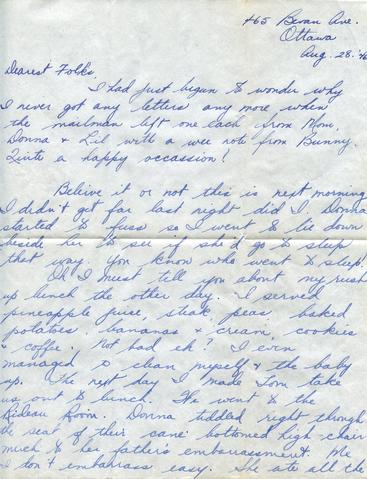 465 Bevan Ave.
Ottawa
Aug. 28. '46
Dearest Folks,
I had just begun to wonder why
I never got any letters any more when
the mailman left one each from Mom,
Donna & Lil with a wee note from Bunny.
Quite a happy occassion!
Beleive it or not this is next morning
I didn't get far last night did I. Donna
started to fuss so I went to lie down
beside her to see if she'd go to sleep
that way. You know who went to sleep!
Oh! I must tell you about my rush
up lunch the other day. I served
pineapple juice, steak peas, baked
potatoes bananas & cream, cookies
& coffee. Not bad eh? I even
managed to clean myself & the baby
up. The next day I made Tom take
us out to lunch. We went to the
Rideau Room. Donna tiddled right through
the seat of their cane-bottomed high-chair
much to her father's embarrassment. Me
I don't embarass easy. She ate all the